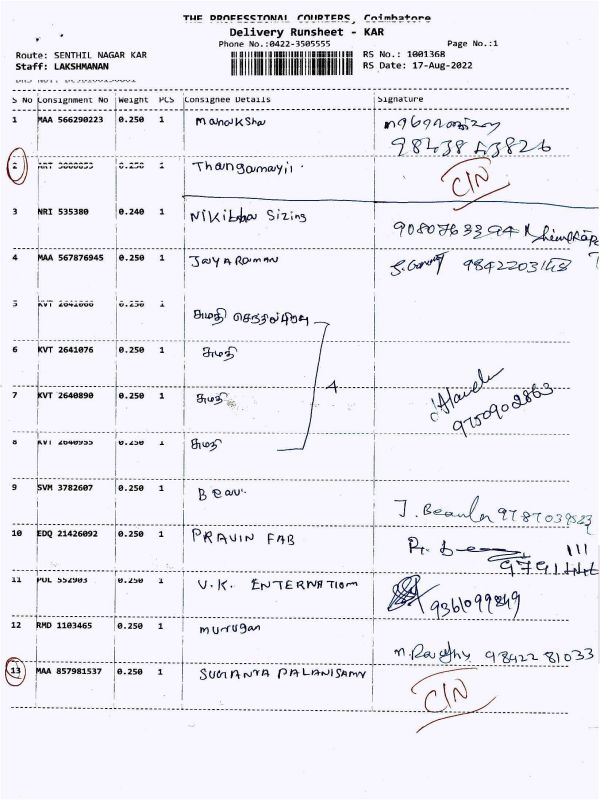 THE PROFESSIONAL COURIERS, Coimbatore
Delivery Runsheet - KAR
Phone No.:0422-3505555 Page No.:1
Route: SENTHIL NAGAR KAR RS No.: 1001368
Staff: LAKSHMANAN RS Date: 17-Aug-2022
S No Consignment No Weight PCS Consignee Details Signature
1 MAA 566290223 0.250 1 Manaksha
98438 43826
2 0.250 1 Thangamayil
CIN
3 NRI 535380 0.240 1 Nikitha Sizing
4 MAA 567876945 0.250 1 Jayaraman
5 KVT 0.250 1 சுமதி
6 KVT 2641076 0.250 1 சுமதி
4
7 KVT 2640890 0.250 1 சுமதி
9750902863
8 KVT 2640935 0.250 1 சுமதி
9 SVM 3782607 0.250 1
J. Beaula 9787039523
10 EDQ 21426092 0.250 1 PRAVIN FAB
11 POL 552903 0.250 1 V.K. ENTERNATIOM
9361099849
12 RMD 1103465 0.250 1 Murugan
98422 81033
13 MAA 857981537 0.250 1 SUGANYA PALANISAMY
CIN